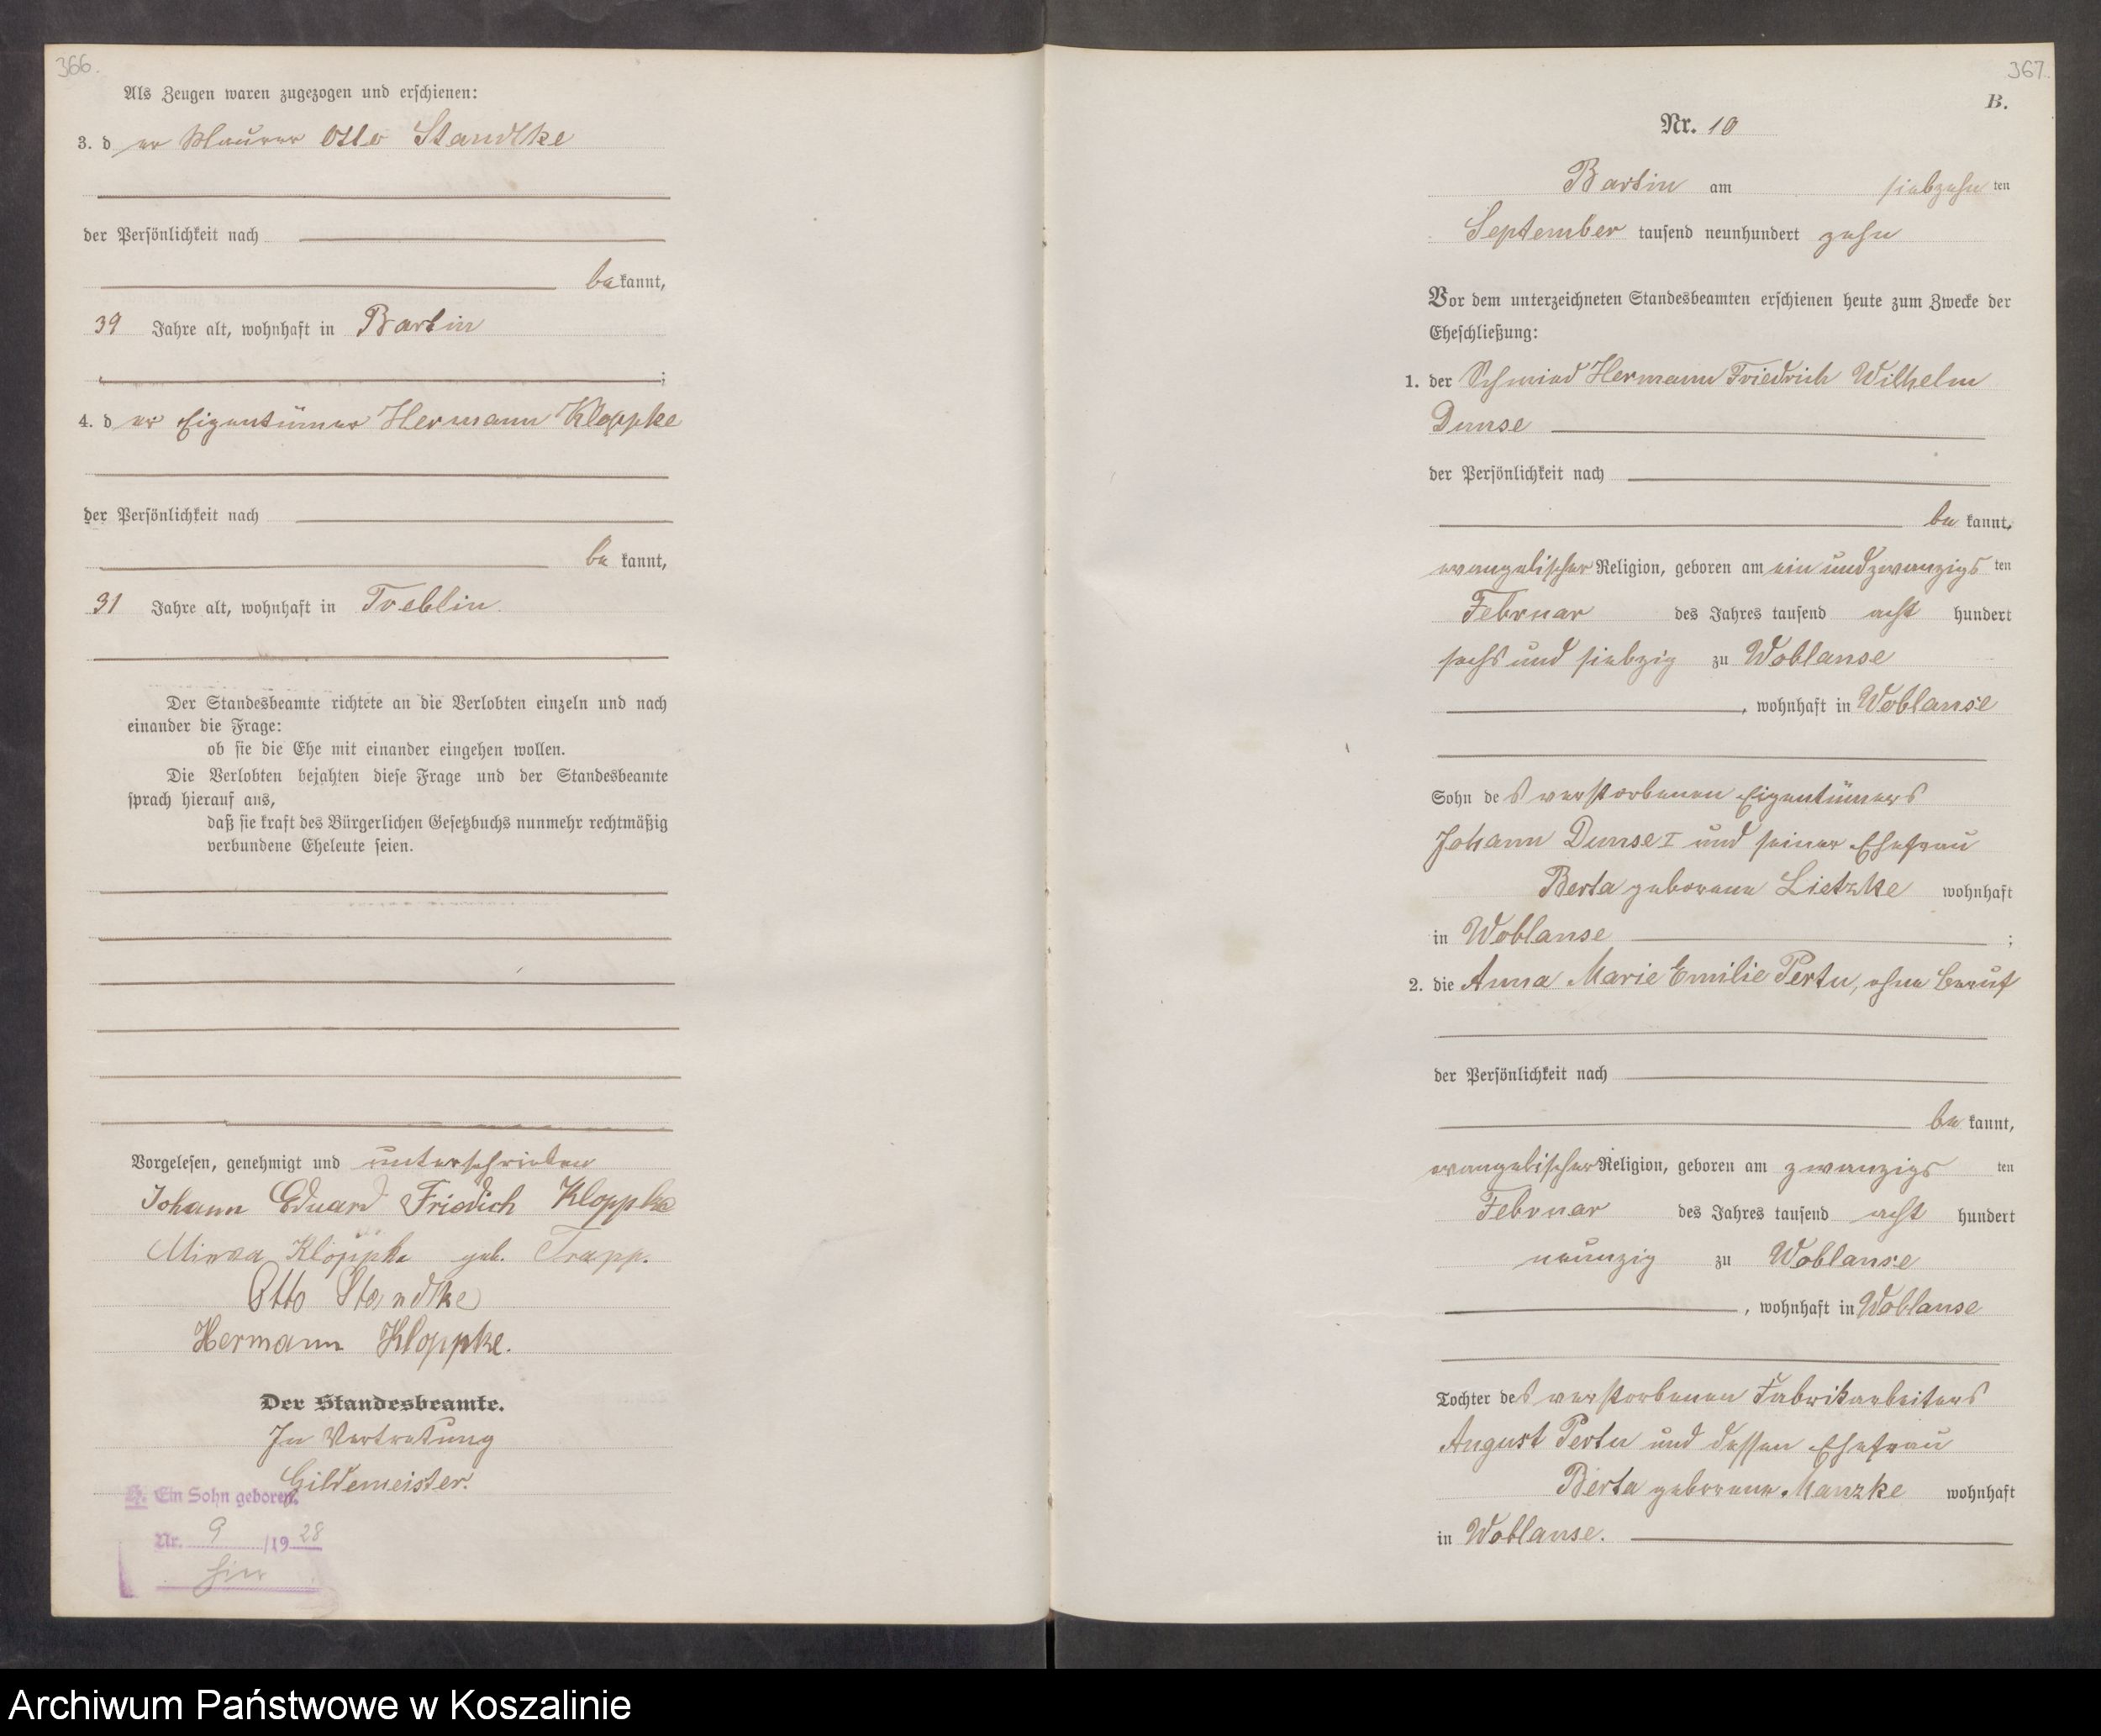 366.
Als Zeugen waren zugezogen und erschienen:
3. der Maurer Otto Standtke
der Persönlichkeit nach
bekannt,
39 Jahre alt, wohnhaft in Bartin
;
4. der Eigentümer Hermann Kloppke
der Persönlichkeit nach
bekannt,
31 Jahre alt, wohnhaft in Treblin
Der Standesbeamte richtete an die Verlobten einzeln und nach
einander die Frage:
ob sie die Ehe mit einander eingehen wollen.
Die Verlobten bejahten diese Frage und der Standesbeamte
sprach hierauf aus,
daß sie kraft des Bürgerlichen Gesetzbuchs nunmehr rechtmäßig
verbundene Eheleute seien.
Vorgelesen, genehmigt und unterschrieben
Johann Eduard Friedrich Kloppke
Kloppke geb. Trapp.
Otto Standtke
Hermann Kloppke.
Der Standesbeamte.
In Vertretung
Gildemeister.
Ein Sohn geboren.
Nr. 9 /19 28
hier
367.
B.
Nr. 10
Bartin am siebzehn ten
September tausend neunhundert zehn
Vor dem unterzeichneten Standesbeamten erschienen heute zum Zwecke der
Eheschließung:
1. der Schmied Hermann Friedrich Wilhelm
Dumse
der Persönlichkeit nach
bekannt,
evangelischer Religion, geboren am ein und zwanzigsten
Februar des Jahres tausend acht hundert
sechs und siebzig zu Woblanse
, wohnhaft in Woblanse
Sohn des verstorbenen Eigentümers
Johann Dumse I und seiner Ehefrau
Berta geborene Lietzke wohnhaft
in Woblanse ;
2. die Anna Marie Emilie Pertu, ohne Beruf
der Persönlichkeit nach
bekannt,
evangelischer Religion, geboren am zwanzigs ten
Februar des Jahres tausend acht hundert
neunzig zu Woblanse
, wohnhaft in Woblanse
Tochter des verstorbenen Fabrikarbeiters
August Pertu und dessen Ehefrau
Berta geborene Manzke wohnhaft
in Woblanse.
Archiwum Państwowe w Koszalinie